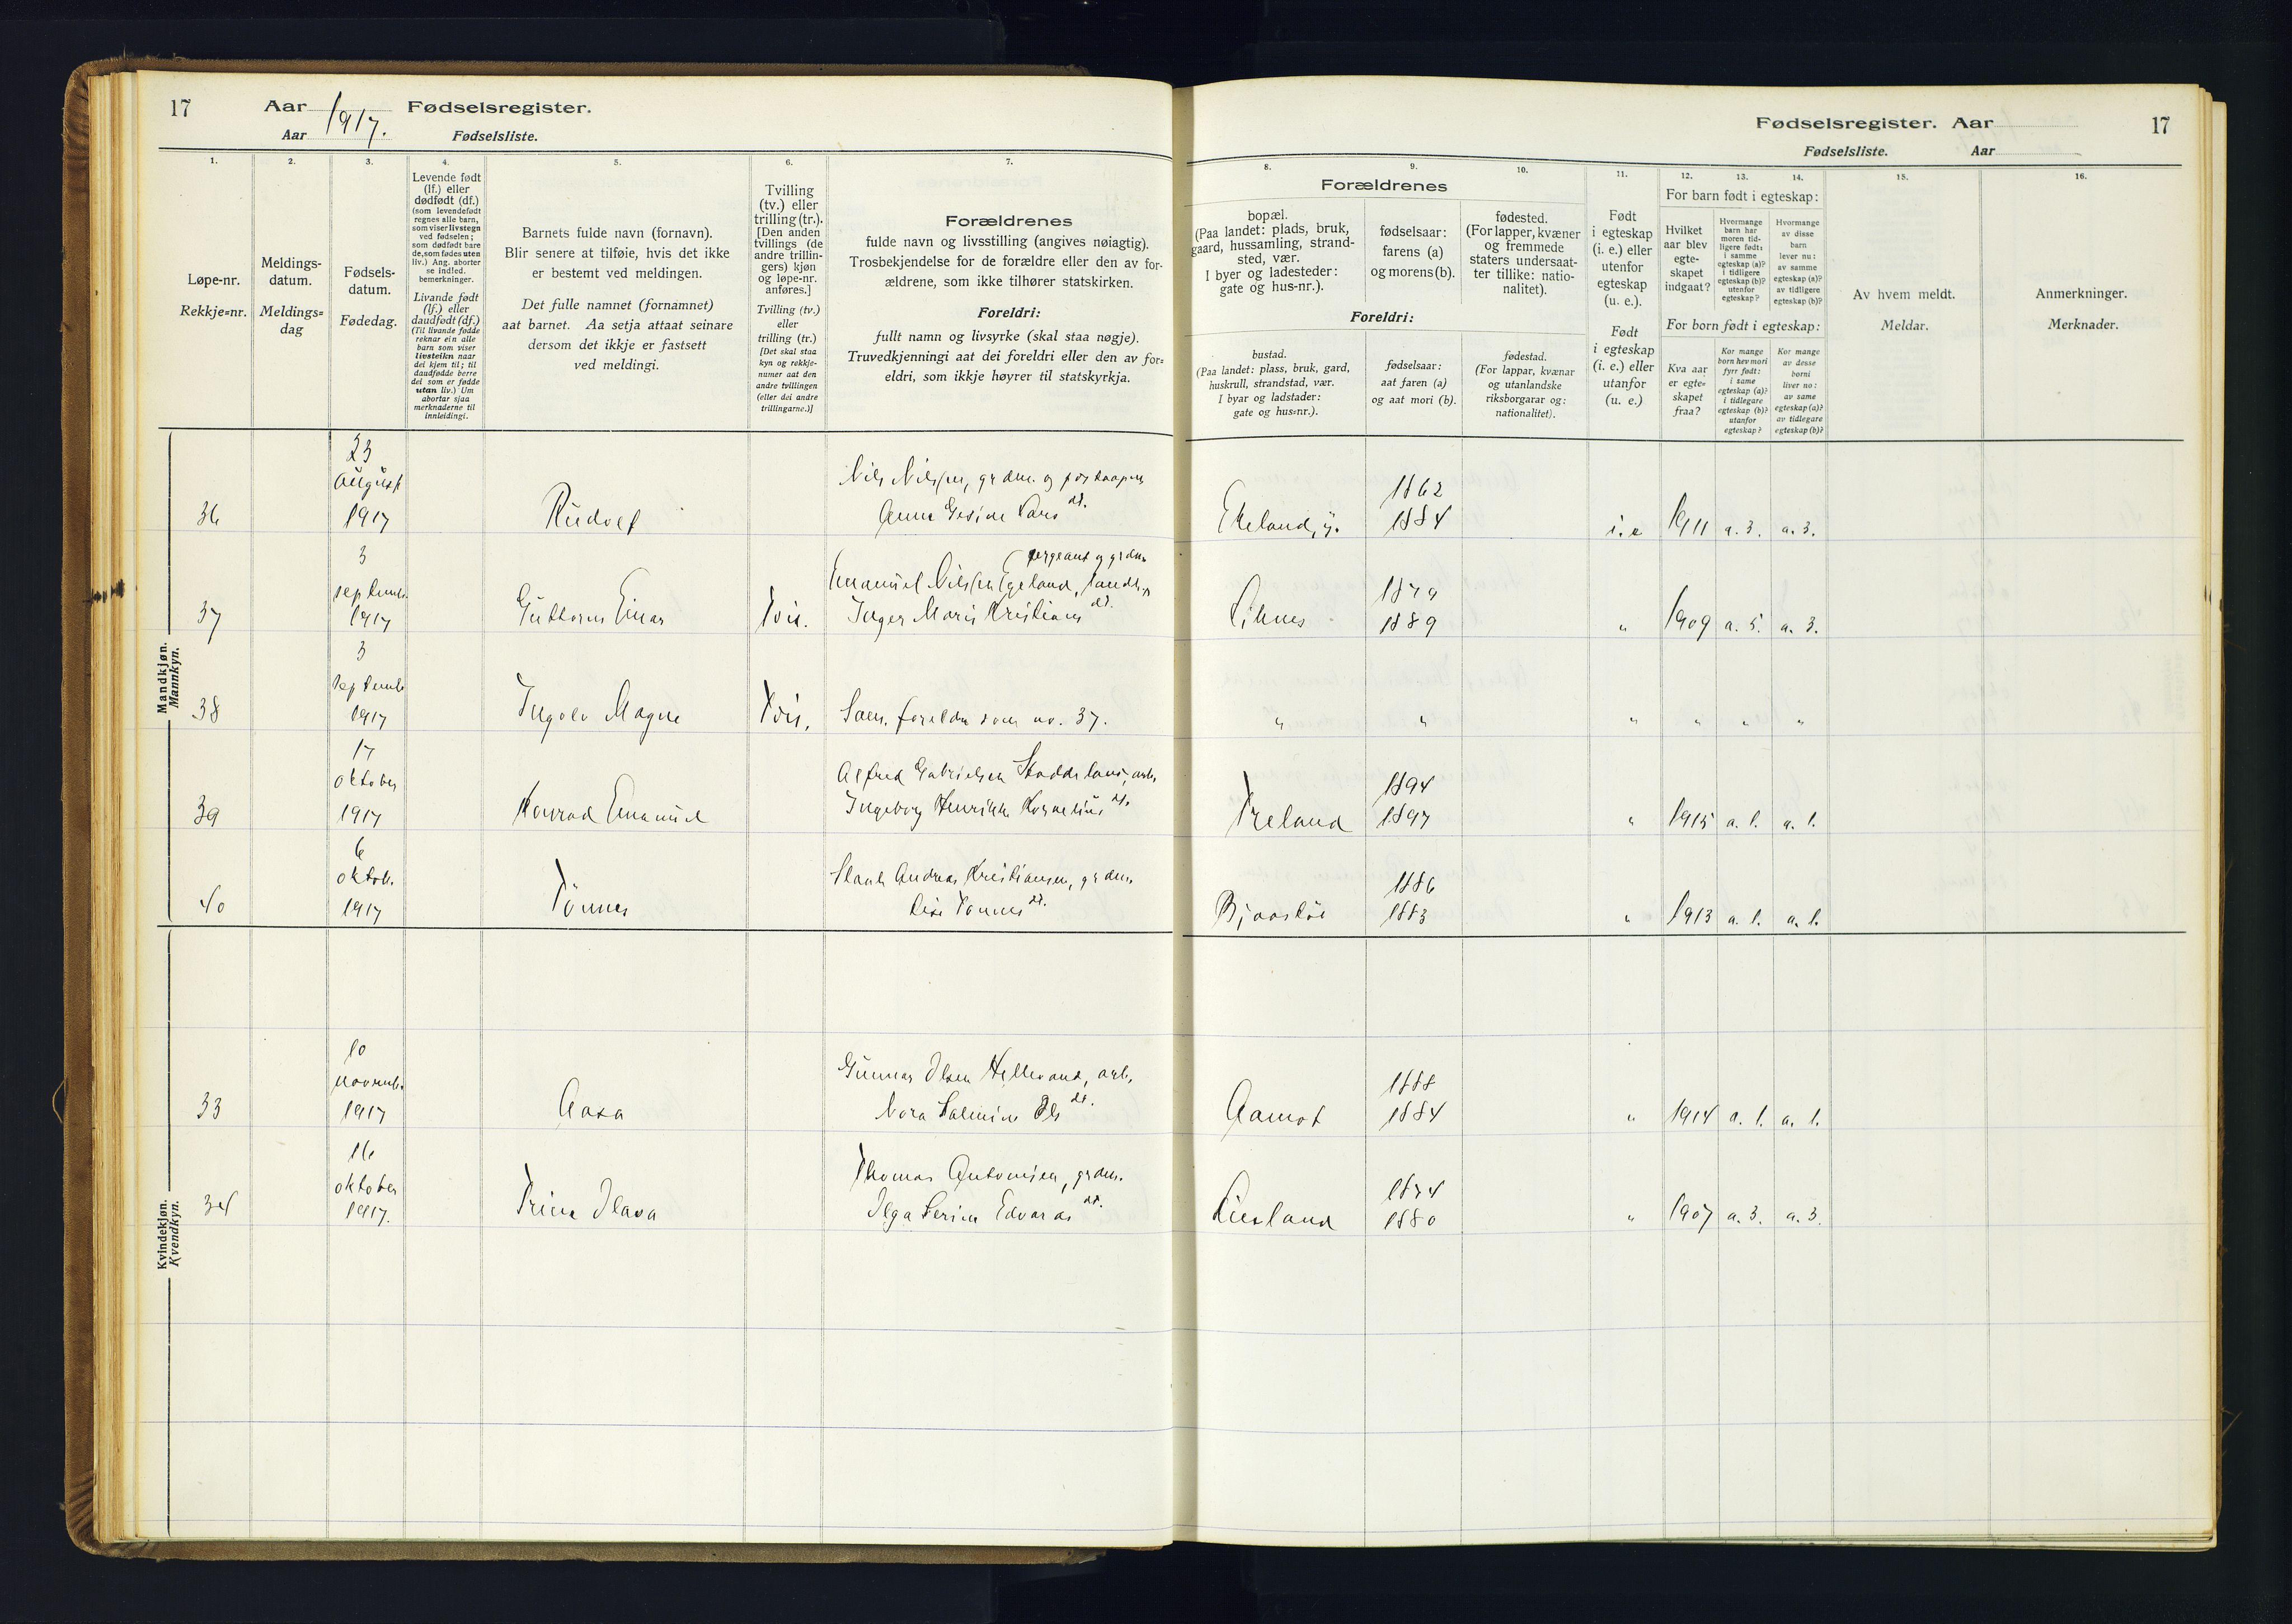 17 Aar 1917. Fødselsregister.
Aar Fødselsliste.
1.
2.
3.
4.
5.
6.
7.
Løpe-nr.
Rekkje=nr.
Meldings-
datum.
Meldings=
dag
Fødsels-
datum.
Fødedag.
Levende født
(lf.) eller
dødfødt (df.)
(som levendefødt
regnes alle barn,
som viser livstegn
ved fødselen;
som dødfødt bare
de, som fødes uten
liv.) Ang. aborter
se indled.
bemerkninger.
Livande født
(lf.) eller
daudfødt (df.)
(Til livande fødde
reknar ein alle
barn som viser
livsteikn naar
dei kjem til; til
daudfødde berre
dei som er fødde
utan liv.) Um
abortar sjaa
merknaderne til
innleidingi.
Barnets fulde navn (fornavn).
Blir senere at tilføie, hvis det ikke
er bestemt ved meldingen.
Det fulle namnet (fornamnet)
aat barnet. Aa setja attaat seinare
dersom det ikkje er fastsett
ved meldingi.
Tvilling
(tv.) eller
trilling (tr.).
[Den anden
tvillings (de
andre trillin-
gers) kjøn
og løpe-nr.
anføres.]
Tvilling (tv.)
eller
trilling (tr.)
[Det skal staa
kyn og rekkje-
numer aat den
andre tvillingen
(eller dei andre
trillingarne.)]
Forældrenes
fulde navn og livsstilling (angives nøiagtig).
Trosbekjendelse for de forældre eller den av for-
ældrene, som ikke tilhører statskirken.
Foreldri:
fullt namn og livsyrke (skal staa nøgje).
Truvedkjenningi aat dei foreldri eller den av for=
eldri, som ikkje høyrer til statskyrkja.
Mandkjøn.
Mannkyn.
36
23
august
1917
Rudolf
Nils Nilsen, grdm. og postaapner
Anna Gesine Lars dt.
37
3
septemb.
1917
Guttorm Einar
Tvil.
(sergeant og grdm.
Emanuel Nilsen Egeland,
Inger Marie Kristians dt.
38
3
septemb
1917
Ingolv Magne
Tvil.
Sam. foreldre som no. 37.
39
17
oktober
1917
Konrad Emanuel
Alfred Gabrielsen Stoddeland, arb.
Ingeborg Henrikke Kornelius dt.
40
6
oktob.
1917
Tönnes
Andreas Kristiansen, grdm.
Lise Tönnes dt.
Kvindekjøn.
Kvendkyn.
33
10
novemb.
1917
Aasa
Gunnar Olsen Hellevand, arb.
Nora Salmine Ols dt.
34
16
oktober
1917.
Trine Olava
Thomas Antonisen, grdm.
Olga Serine Edvards dt.
Fødselsregister. Aar 17
Fødselsliste. Aar
8.
9.
10.
11.
12.
13.
14.
15.
16.
Forældrenes
bopæl.
(Paa landet: plads, bruk,
gaard, hussamling, strand-
sted, vær.
I byer og ladesteder:
gate og hus-nr.).
fødselsaar:
farens (a)
og morens (b).
fødested.
(For lapper, kvæner
og fremmede
staters undersaat-
ter tillike: natio-
nalitet).
Foreldri:
bustad.
(Paa landet: plass, bruk, gard,
huskrull, strandstad, vær.
I byar og ladstader:
gate og hus=nr.).
fødselsaar:
aat faren (a)
og aat mori (b).
fødestad.
(For lappar, kvænar
og utanlandske
riksborgarar og:
nationalitet).
Født
i egteskap
(i. e.) eller
utenfor
egteskap
(u. e.).
Født
i egteskap
(i. e.) eller
utanfor
(u. e.)
For barn født i egteskap:
Hvilket
aar blev
egte-
skapet
indgaat?
Hvormange
barn har
moren tid-
ligere født:
i samme
egteskap (a)?
i tidligere
egteskap (b)?
utenfor
egteskap?
Hvormange
av disse
barn
lever nu:
av samme
egteskap (a)?
av tidligere
egteskap (b)?
For born født i egteskap:
Kva aar
er egte=
skapet
fraa?
Kor mange
born hev mori
fyrr født:
i same
egteskap (a)?
i tidlegare
egteskap (b)?
utanfor
egteskap?
Kor mange
av desse
borni
liver no:
av same
egteskap (a)?
av tidlegare
egteskap (b)?
Av hvem meldt.
Meldar.
Anmerkninger.
Merknader.
Ekeland, y.
1862
1884
i. e
1911
a. 3.
a. 3.
Lihnes
1879
1889
"
1909
a. 5.
a. 3.
"
"
"
"
"
"
Treland
1894
1897
"
1915
a. 1.
a. 1.
1886
1883
"
1913
a. 1.
a. 1.
Aamot
1888
1884
"
1914
a. 1.
a. 1.
Liesland
1874
1880
"
1907
a. 3.
a. 3.